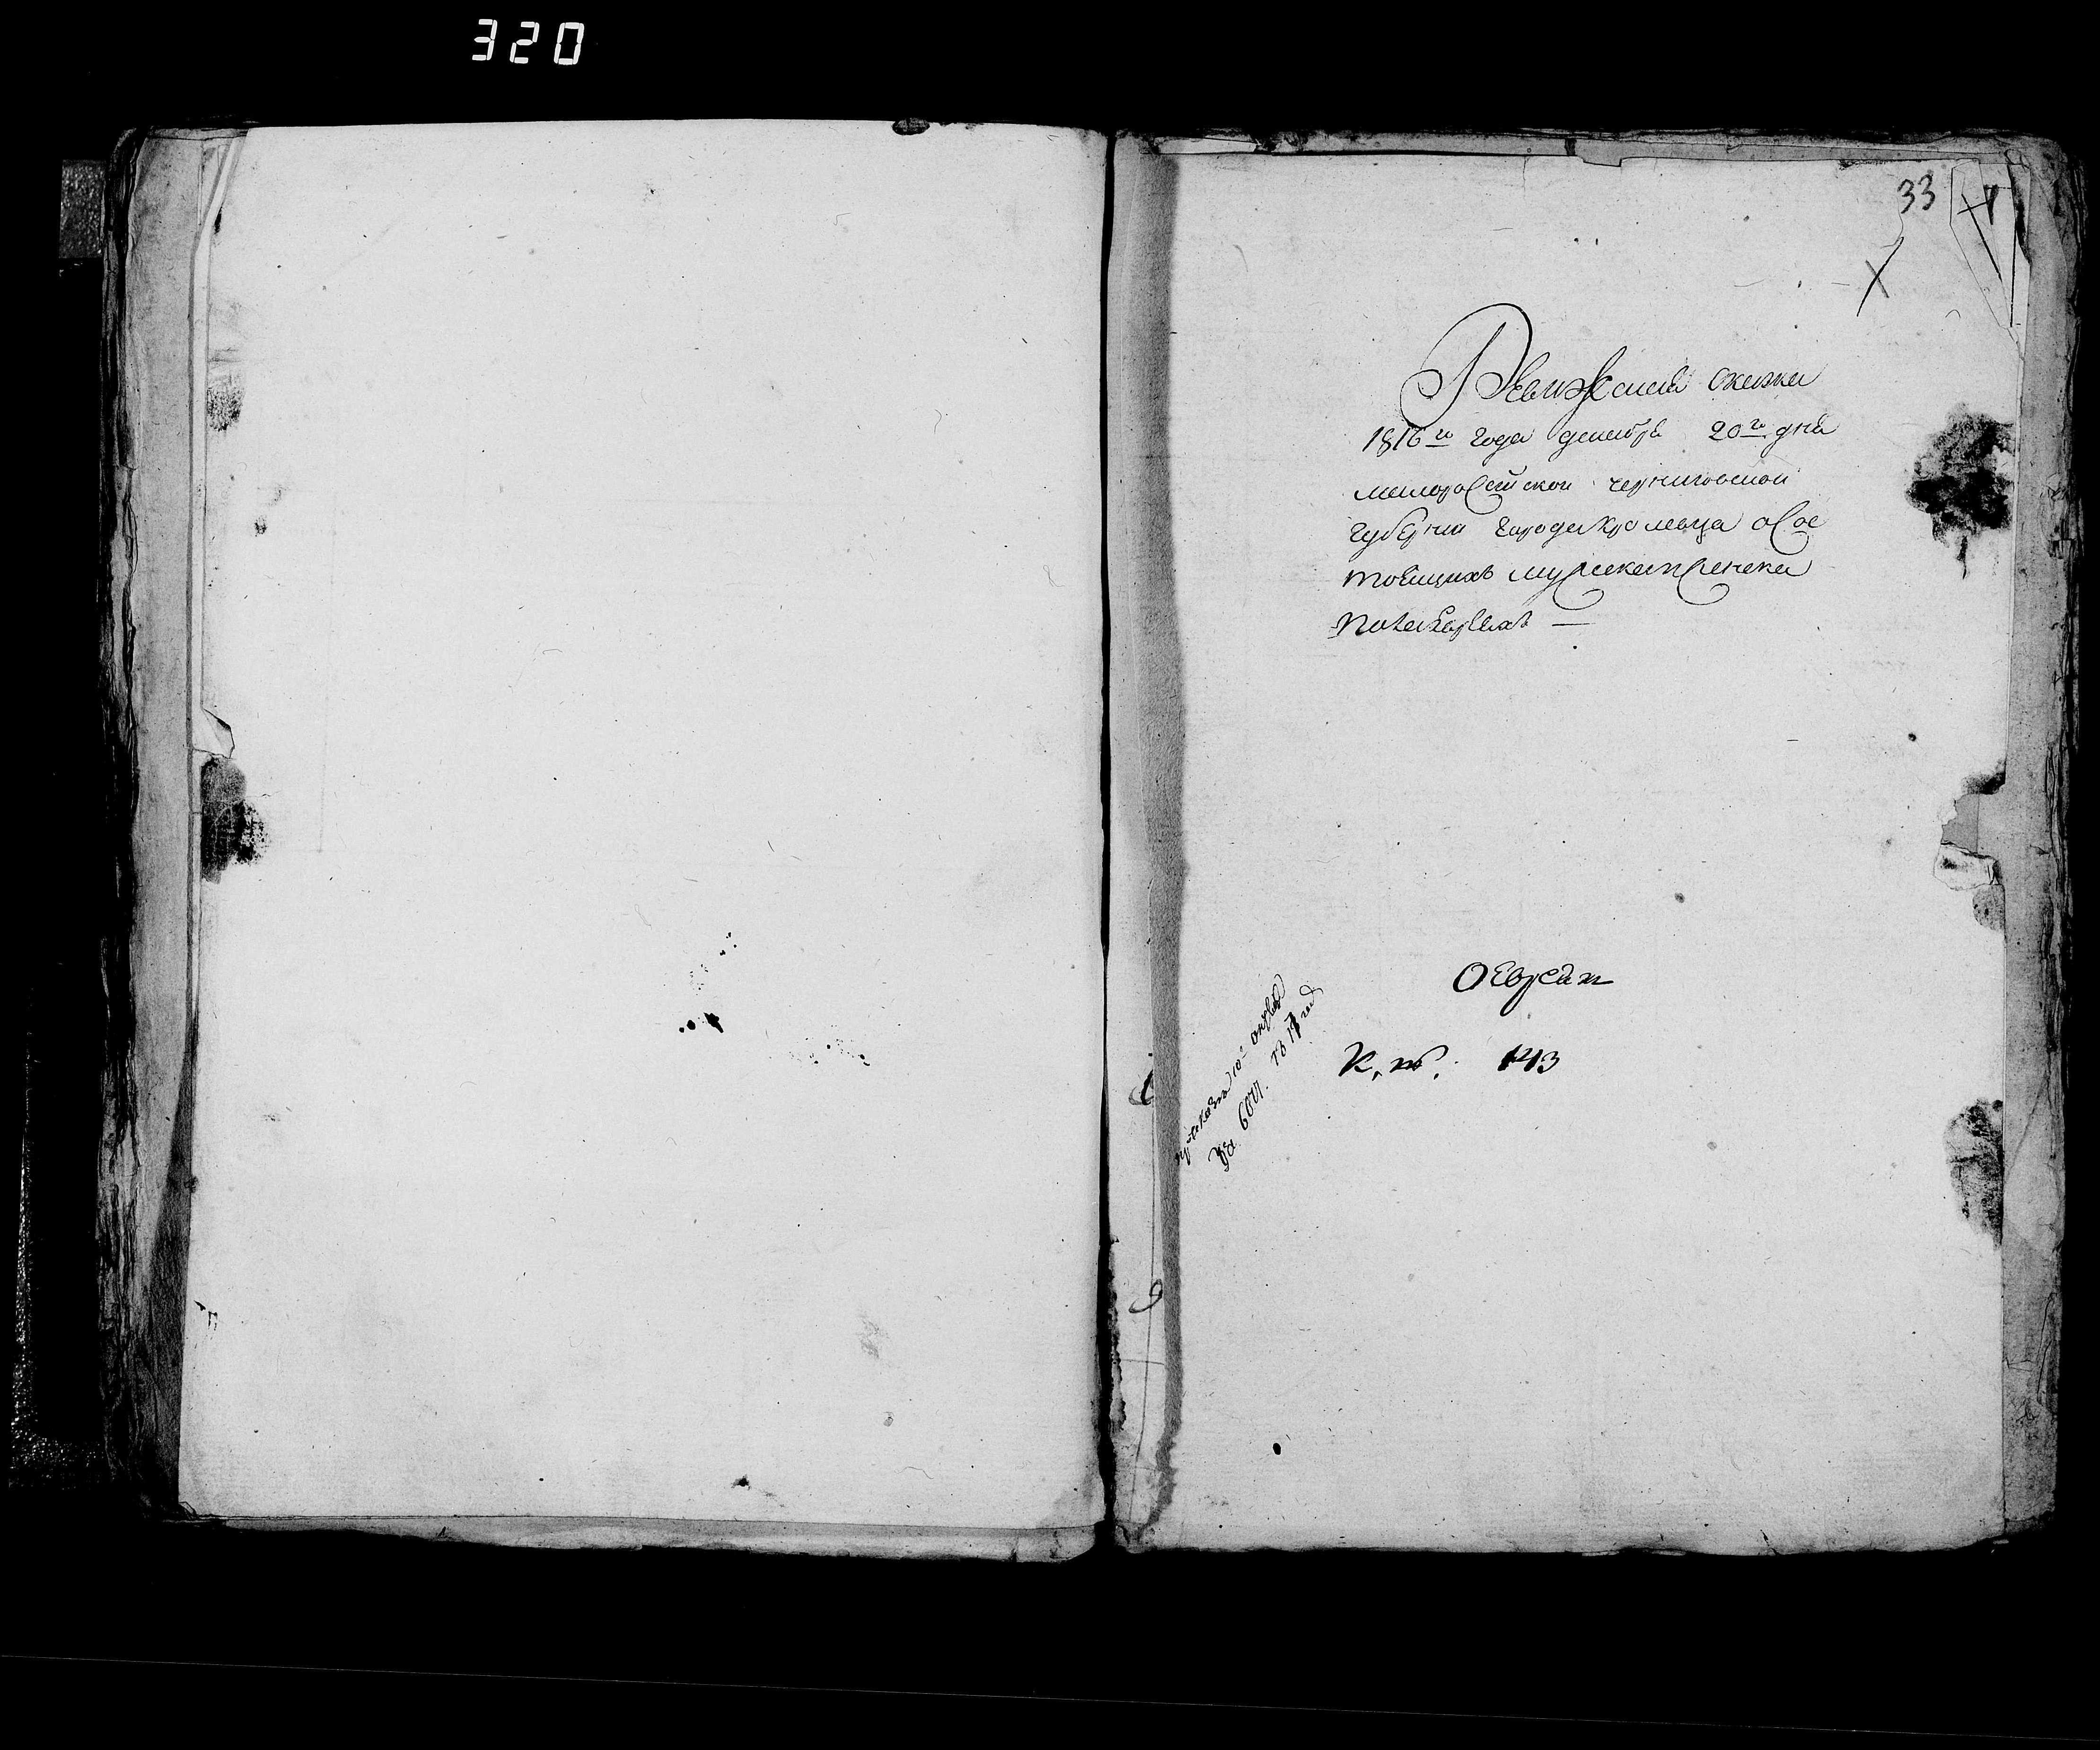 320
33
Ревижская скаска
1816го года декабря 20го дня
малоросийской черниговской
губернии города Кролевца о сос
тоящихъ мужеска и женска
пола Евреяхъ —
О Евреях
К. №. 143